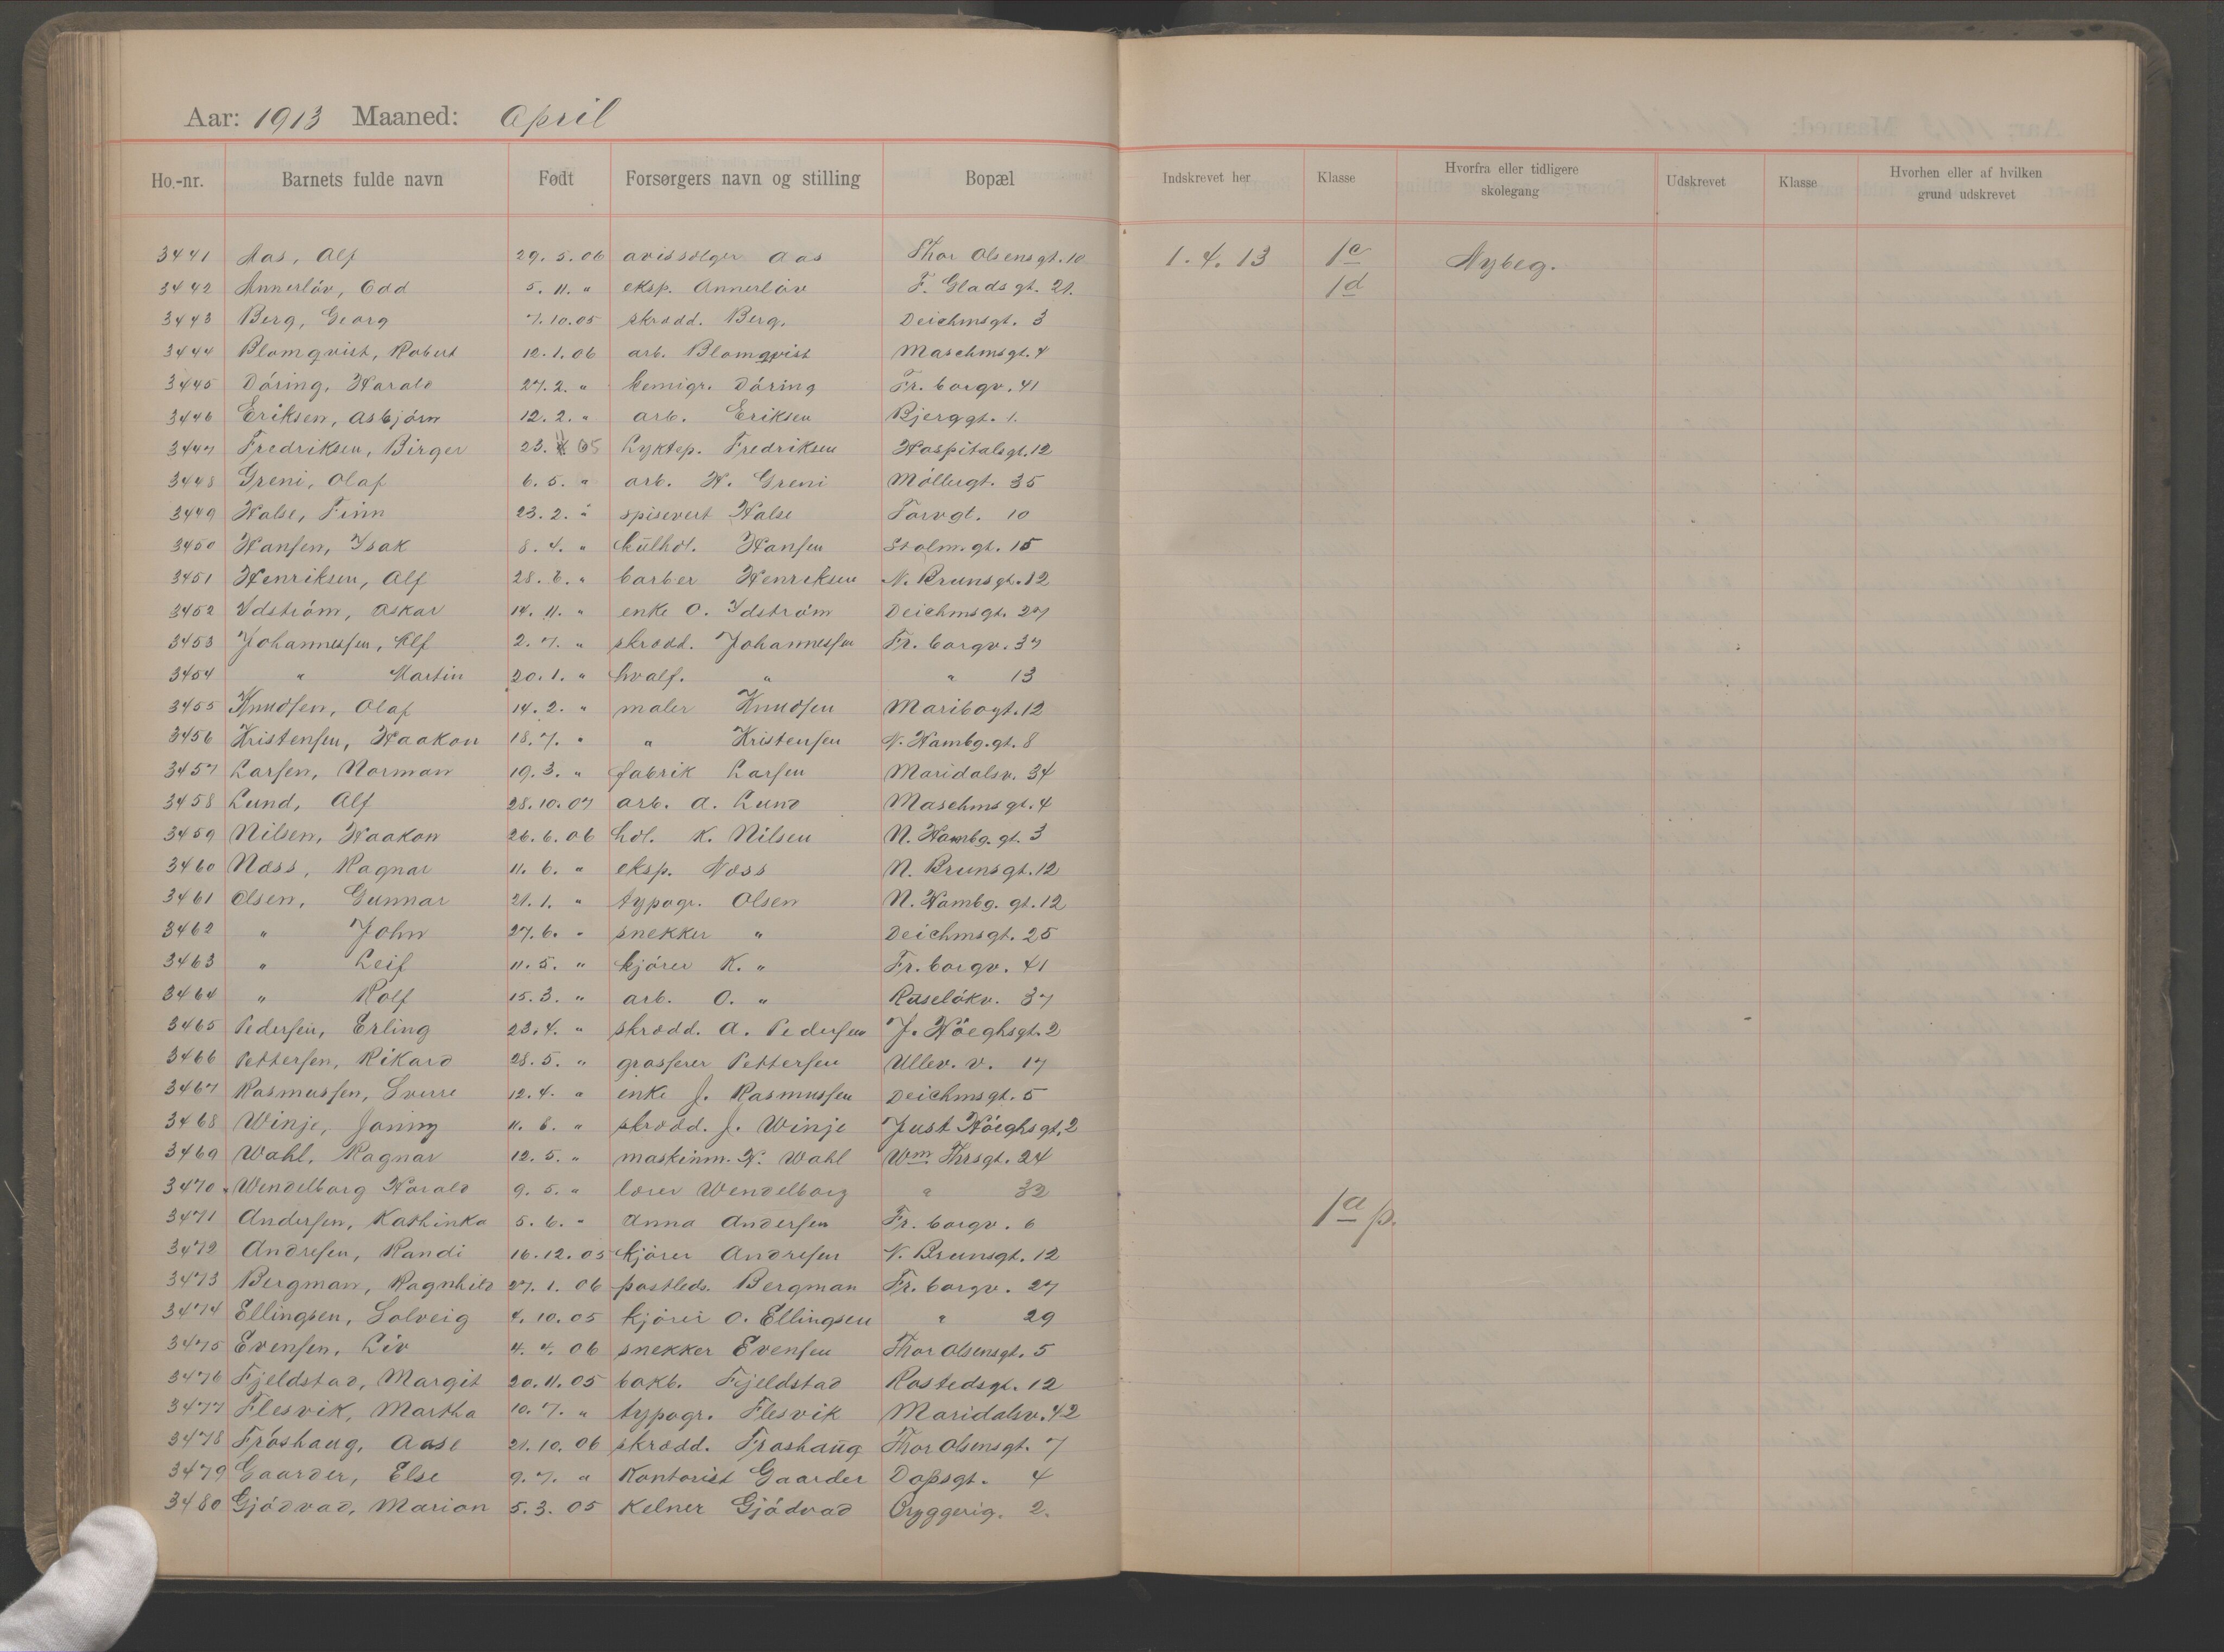 Aar: 1913 Maaned: April
Ho.-nr. Barnets fulde navn Født Forsørgers navn og stilling Bopæl Indskrevet her Klasse Hvorfra eller tidligere skolegang Udskrevet Klasse Hvorhen eller af hvilken grund udskrevet
3441 Aas, Alf 29.5.06 avissælger Aas Thor Olsensgt. 10 1.4.13 1c Nybeg.
3442 Annerløv, Odd 5.11. " eksp. Annerløv F. Gladsgt. 21. 1d
3443 Berg, Georg 7.10.05 skrædd. Berg. Deichmsgt. 3
3444 Blomqvist, Robert 12.1.06 arb. Blomqvist Maschmsgt. 4
3445 Döring, Harald 27.2. " kemigr. Döring Fr.borgv. 41
3446 Eriksen, Asbjörn 12.2. " arb. Eriksen Bjerggt. 1.
3447 Fredriksen, Birger 23. 05 Lyktep. Fredriksen Hospitalsgt. 12
3448 Greni, Olaf 6.5. " arb. H. Greni Möllergt. 35
3449 Halse, Finn 23.2. " spisevert Halse Torvgt. 10
3450 Hansen, Isak 8.4. " kulhdl. Hansen St olm.gt. 15
3451 Henriksen, Alf 28.6. " barber Henriksen N. Brunsgt. 12
3452 Ydström, Oskar 14.11. " enke O. Ydström Deichmsgt. 27
3453 Johannessen, Alf 2.7. " skrædd. Johannessen Fr.borgv. 37
3454 " Martin 20.1. " hvalf. " " 13
3455 Knudsen, Olaf 14.2. " maler Knudsen Maribogt. 12
3456 Kristensen, Haakon 18.7. " " Kristensen N. Hambg.gt. 8
3457 Larsen, Norman 19.3. " fabrik Larsen Maridalsv. 34
3458 Lund, Alf 28.10.07 arb. A. Lund Maschmsgt. 4
3459 Nilsen, Haakon 26.6.06 hdl. K. Nilsen N. Hambg.gt. 3
3460 Næss, Ragnar 11.6. " eksp. Næss N. Brunsgt. 12
3461 Olsen, Gunnar 21.1. " typogr. Olsen N. Hambg.gt. 12
3462 " John 27.6. " snekker " Deichmsgt. 25
3463 " Leif 11.5. " kjörer K. " Fr.borgv. 41
3464 " Rolf 15.3. " arb. O. " Ruselökv. 37
3465 Pedersen, Erling 23.4. " skrædd. A. Pedersen J. Höeghsgt. 2
3466 Pettersen, Rikard 28.5. " grosserer Pettersen Ullev.v. 17
3467 Rasmussen, Sverre 12.4. " enke J. Rasmussen Deichmsgt. 5
3468 Winje, Jonny 11.8. " skrædd. J. Winje Just Höeghsgt. 2
3469 Wahl, Ragnar 12.5. " maskinm. H. Wahl Wm. Thrsgt. 24
3470 Wendelborg Harald 9.5. " lærer Wendelborg " 32
3471 Andersen, Kathinka 5.6. " Anna Andersen Fr.borgv. 6 1a p.
3472 Andresen, Randi 16.12.05 kjörer Andresen N. Brunsgt. 12
3473 Bergman, Ragnhild 27.1.06 postleds. Bergman Fr.borgv. 27
3474 Ellingsen, Solveig 4.10.05 kjörer O. Ellingsen " 29
3475 Evensen, Liv 4.4.06 snekker Evensen Thor Olsensgt. 5
3476 Fjeldstad, Margit 20.11.05 bokb. Fjeldstad Rostedsgt. 12
3477 Flesvik, Martha 10.7. " typogr. Flesvik Maridalsv. 42
3478 Fröshaug, Aase 21.10.06 skrædd. Froshaug Thor Olsensgt. 7
3479 Gaarder, Else 9.7. " Kontorist Gaarder Dopsgt. 4
3480 Gjödvad, Marion 5.3.05 Kelner Gjödvad Bryggerig. 2.